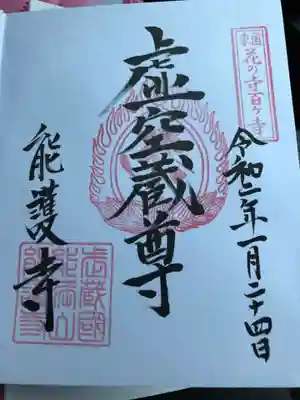 東国
花の寺百ヶ寺
令和二年一月二十四日
虚空蔵尊
能護寺
武蔵國
能满山
能護寺